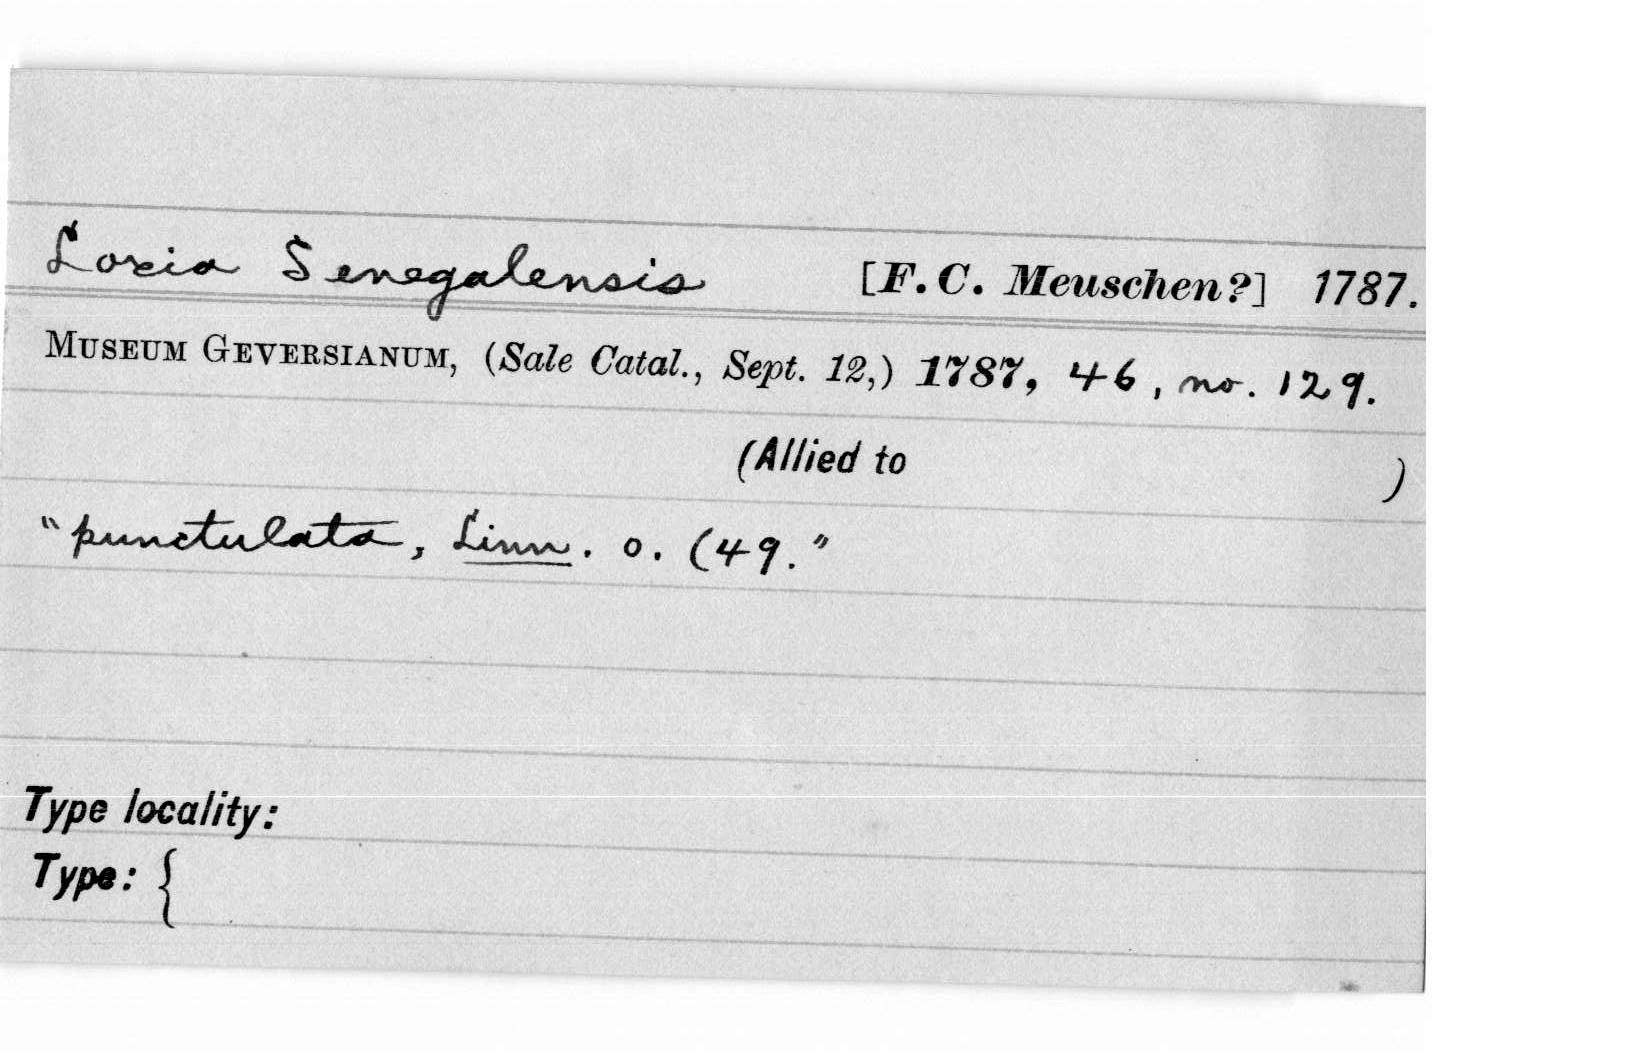 Loxia Senegalensis [F. C. Meuschen?] 1787.
MUSEUM GEVERSIANUM, (Sale Catal., Sept. 12,) 1787, 46, no. 129.
(Allied to )
"punctulata, Linn. o. (49."
Type locality:
Type: {